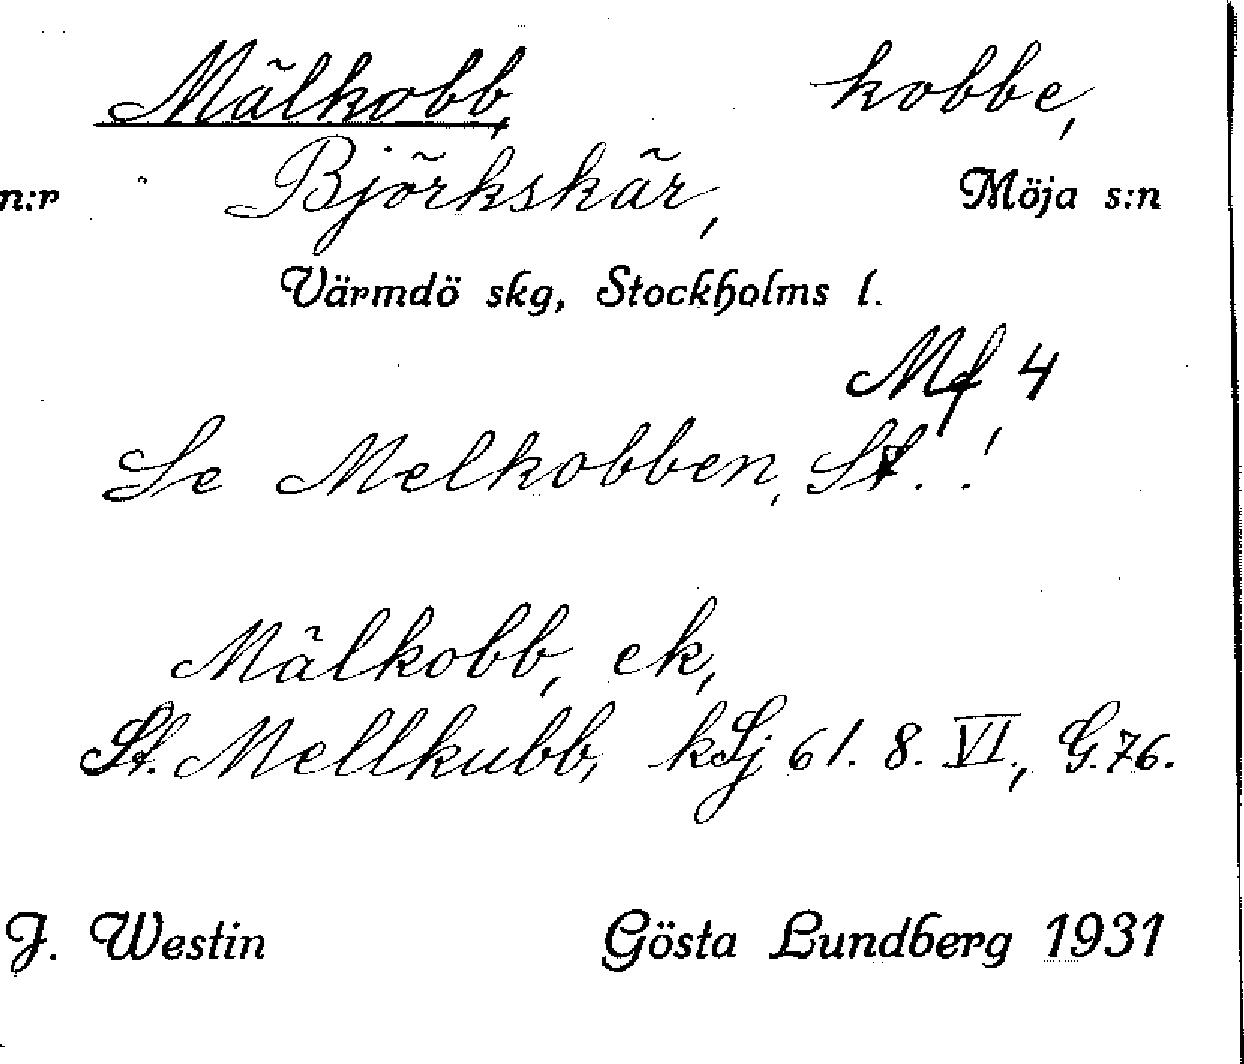 Mälkobb, kobbe,
n:r Björkskär, Möja s:n
Värmdö skg, Stockholms l.
Mf 4
Se Melkobben, St. !
Mälkobb, ek,
St. Mellkubb, kSj 61. 8. VI., G.76.
J. Westin Gösta Lundberg 1931